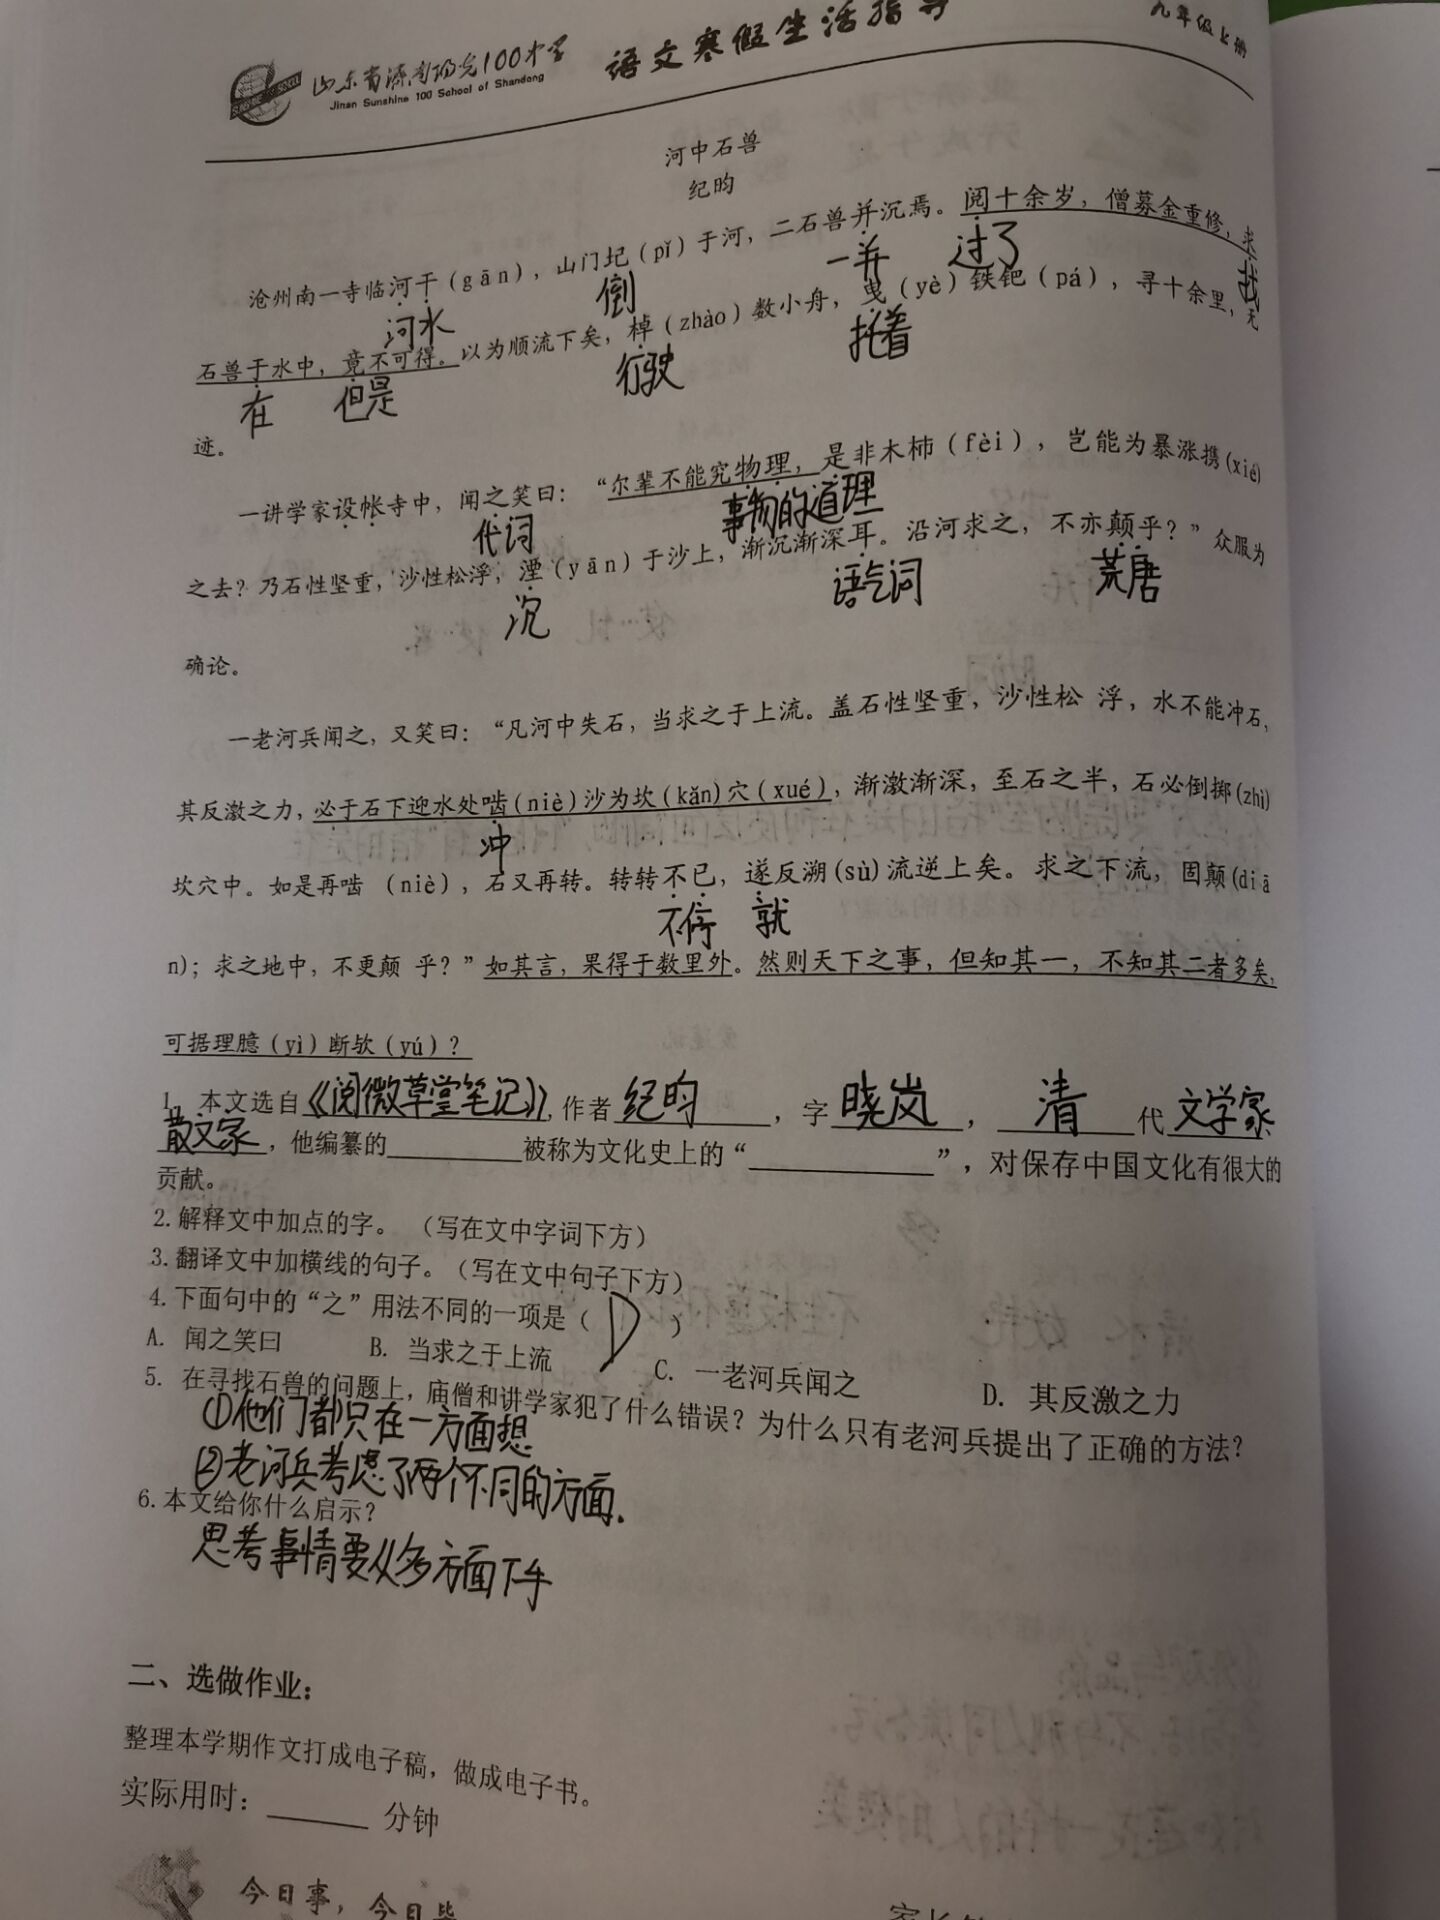 山东省济南阳光100中学
Jinan Sunshine 100 School of Shandong
语文寒假生活指导
九年级上册
河中石兽
纪昀
沧州南一寺临河干(gān)，山门圮(pǐ)于河，二石兽并沉焉。阅十余岁，僧募金重修，求
河水 倒 一并 过了 找
石兽于水中，竟不可得。以为顺流下矣，棹(zhào)数小舟，曳(yè)铁钯(pá)，寻十余里，无
在 但是 行驶 托着
迹。
一讲学家设帐寺中，闻之笑曰：“尔辈不能究物理，是非木杮(fèi)，岂能为暴涨携(xié)
代词 事物的道理
之去？乃石性坚重，沙性松浮，湮(yān)于沙上，渐沉渐深耳。沿河求之，不亦颠乎？”众服为
沉 语气词 荒唐
确论。
一老河兵闻之，又笑曰：“凡河中失石，当求之于上流。盖石性坚重，沙性松 浮，水不能冲石，
其反激之力，必于石下迎水处啮(niè)沙为坎(kǎn)穴(xué)，渐激渐深，至石之半，石必倒掷(zhì)
冲
坎穴中。如是再啮 (niè)，石又再转。转转不已，遂反溯(sù)流逆上矣。求之下流，固颠(diā
不停 就
n)；求之地中，不更颠 乎？”如其言，果得于数里外。然则天下之事，但知其一，不知其二者多矣，
可据理臆(yì)断欤(yú)？
1. 本文选自《阅微草堂笔记》，作者纪昀，字晓岚，清代文学家
散文家，他编纂的__________被称为文化史上的“______________”，对保存中国文化有很大的
贡献。
2.解释文中加点的字。（写在文中字词下方）
3.翻译文中加横线的句子。（写在文中句子下方）
4.下面句中的“之”用法不同的一项是（ D ）
A. 闻之笑曰 B. 当求之于上流 C. 一老河兵闻之 D. 其反激之力
5. 在寻找石兽的问题上，庙僧和讲学家犯了什么错误？为什么只有老河兵提出了正确的方法？
①他们都只在一方面想
②老河兵考虑了两个不同的方面.
6.本文给你什么启示？
思考事情要从多方面下手
二、选做作业：
整理本学期作文打成电子稿，做成电子书。
实际用时：______ 分钟
今日事，今日毕